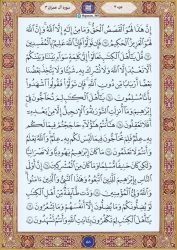 جزء ٣
سورة آل عمران ٣
إِنَّ هَٰذَا لَهُوَ ٱلْقَصَصُ ٱلْحَقُّ وَمَا مِنْ إِلَٰهٍ إِلَّا ٱللَّهُ وَإِنَّ ٱللَّهَ
لَهُوَ ٱلْعَزِيزُ ٱلْحَكِيمُ ٦٢ فَإِن تَوَلَّوْا۟ فَإِنَّ ٱللَّهَ عَلِيمٌۢ بِٱلْمُفْسِدِينَ
٦٣ قُلْ يَٰٓأَهْلَ ٱلْكِتَٰبِ تَعَالَوْا۟ إِلَىٰ كَلِمَةٍ سَوَآءٍۭ بَيْنَنَا وَبَيْنَكُمْ
أَلَّا نَعْبُدَ إِلَّا ٱللَّهَ وَلَا نُشْرِكَ بِهِۦ شَيْـًٔا وَلَا يَتَّخِذَ بَعْضُنَا
بَعْضًا أَرْبَابًا مِّن دُونِ ٱللَّهِ فَإِن تَوَلَّوْا۟ فَقُولُوا۟ ٱشْهَدُوا۟
بِأَنَّا مُسْلِمُونَ ٦٤ يَٰٓأَهْلَ ٱلْكِتَٰبِ لِمَ تُحَآجُّونَ فِىٓ
إِبْرَٰهِيمَ وَمَآ أُنزِلَتِ ٱلتَّوْرَىٰةُ وَٱلْإِنجِيلُ إِلَّا مِنۢ بَعْدِهِۦٓ
أَفَلَا تَعْقِلُونَ ٦٥ هَٰٓأَنتُمْ هَٰٓؤُلَآءِ حَٰجَجْتُمْ فِيمَا لَكُم
بِهِۦ عِلْمٌ فَلِمَ تُحَآجُّونَ فِيمَا لَيْسَ لَكُم بِهِۦ عِلْمٌ وَٱللَّهُ يَعْلَمُ
وَأَنتُمْ لَا تَعْلَمُونَ ٦٦ مَا كَانَ إِبْرَٰهِيمُ يَهُودِيًّا وَلَا نَصْرَانِيًّا
وَلَٰكِن كَانَ حَنِيفًا مُّسْلِمًا وَمَا كَانَ مِنَ ٱلْمُشْرِكِينَ ٦٧ إِنَّ أَوْلَى
ٱلنَّاسِ بِإِبْرَٰهِيمَ لَلَّذِينَ ٱتَّبَعُوهُ وَهَٰذَا ٱلنَّبِىُّ وَٱلَّذِينَ
ءَامَنُوا۟ وَٱللَّهُ وَلِىُّ ٱلْمُؤْمِنِينَ ٦٨ وَدَّت طَّآئِفَةٌ مِّنْ أَهْلِ ٱلْكِتَٰبِ
لَوْ يُضِلُّونَكُمْ وَمَا يُضِلُّونَ إِلَّآ أَنفُسَهُمْ وَمَا يَشْعُرُونَ ٦٩
يَٰٓأَهْلَ ٱلْكِتَٰبِ لِمَ تَكْفُرُونَ بِـَٔايَٰتِ ٱللَّهِ وَأَنتُمْ تَشْهَدُونَ ٧٠
٥٨